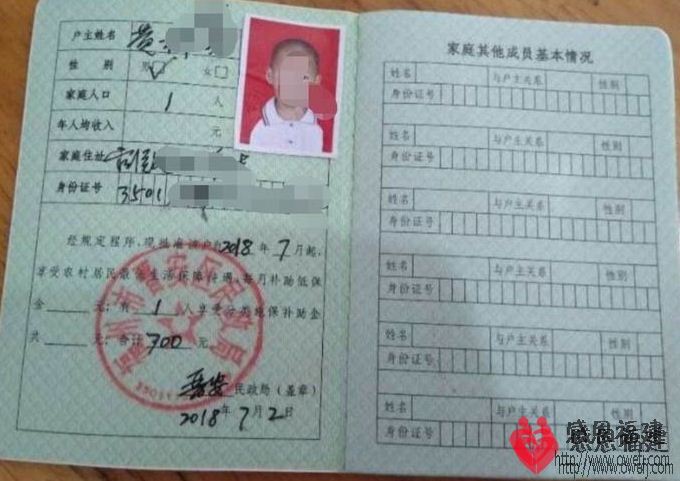 户主姓名 黄
性 别 男□ 女□
家庭人口 1 人
年人均收入 元
家庭住址
身份证号 3501
经规定程序，现批准该户自2018年7月起，
享受农村居民最低生活保障待遇，每月补助低保
金 元；有 1 人享受分类施保补助金
共 元；合计300元。
晋安民政局（盖章）
2018年7月2日
福州市晋安区民政局
家庭其他成员基本情况
姓名 与户主关系 性别
身份证号
姓名 与户主关系 性别
身份证号
姓名 与户主关系 性别
身份证号
姓名 与户主关系 性别
身份证号
姓名 与户主关系 性别
身份证号
姓名 与户主关系
身份证号
感恩福建